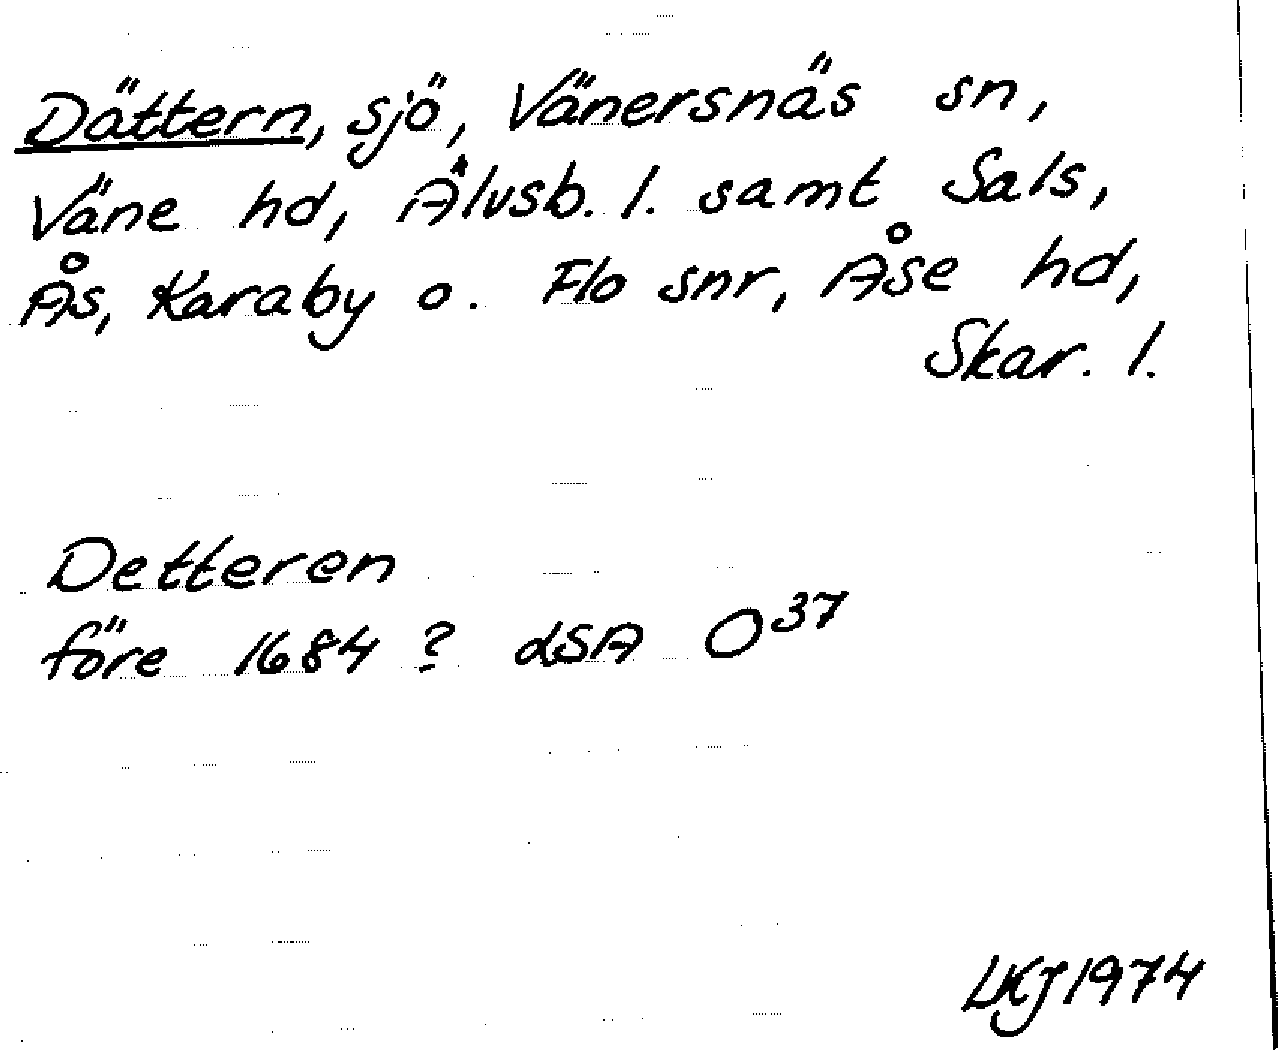 Dättern, sjö, Vänersnäs sn,
Väne hd, Älvsb. l. samt Sals,
Ås, Karaby o. Flo snr, Åse hd,
Skar. l.
Detteren
före 1684? LSA O37
LKJ 1974